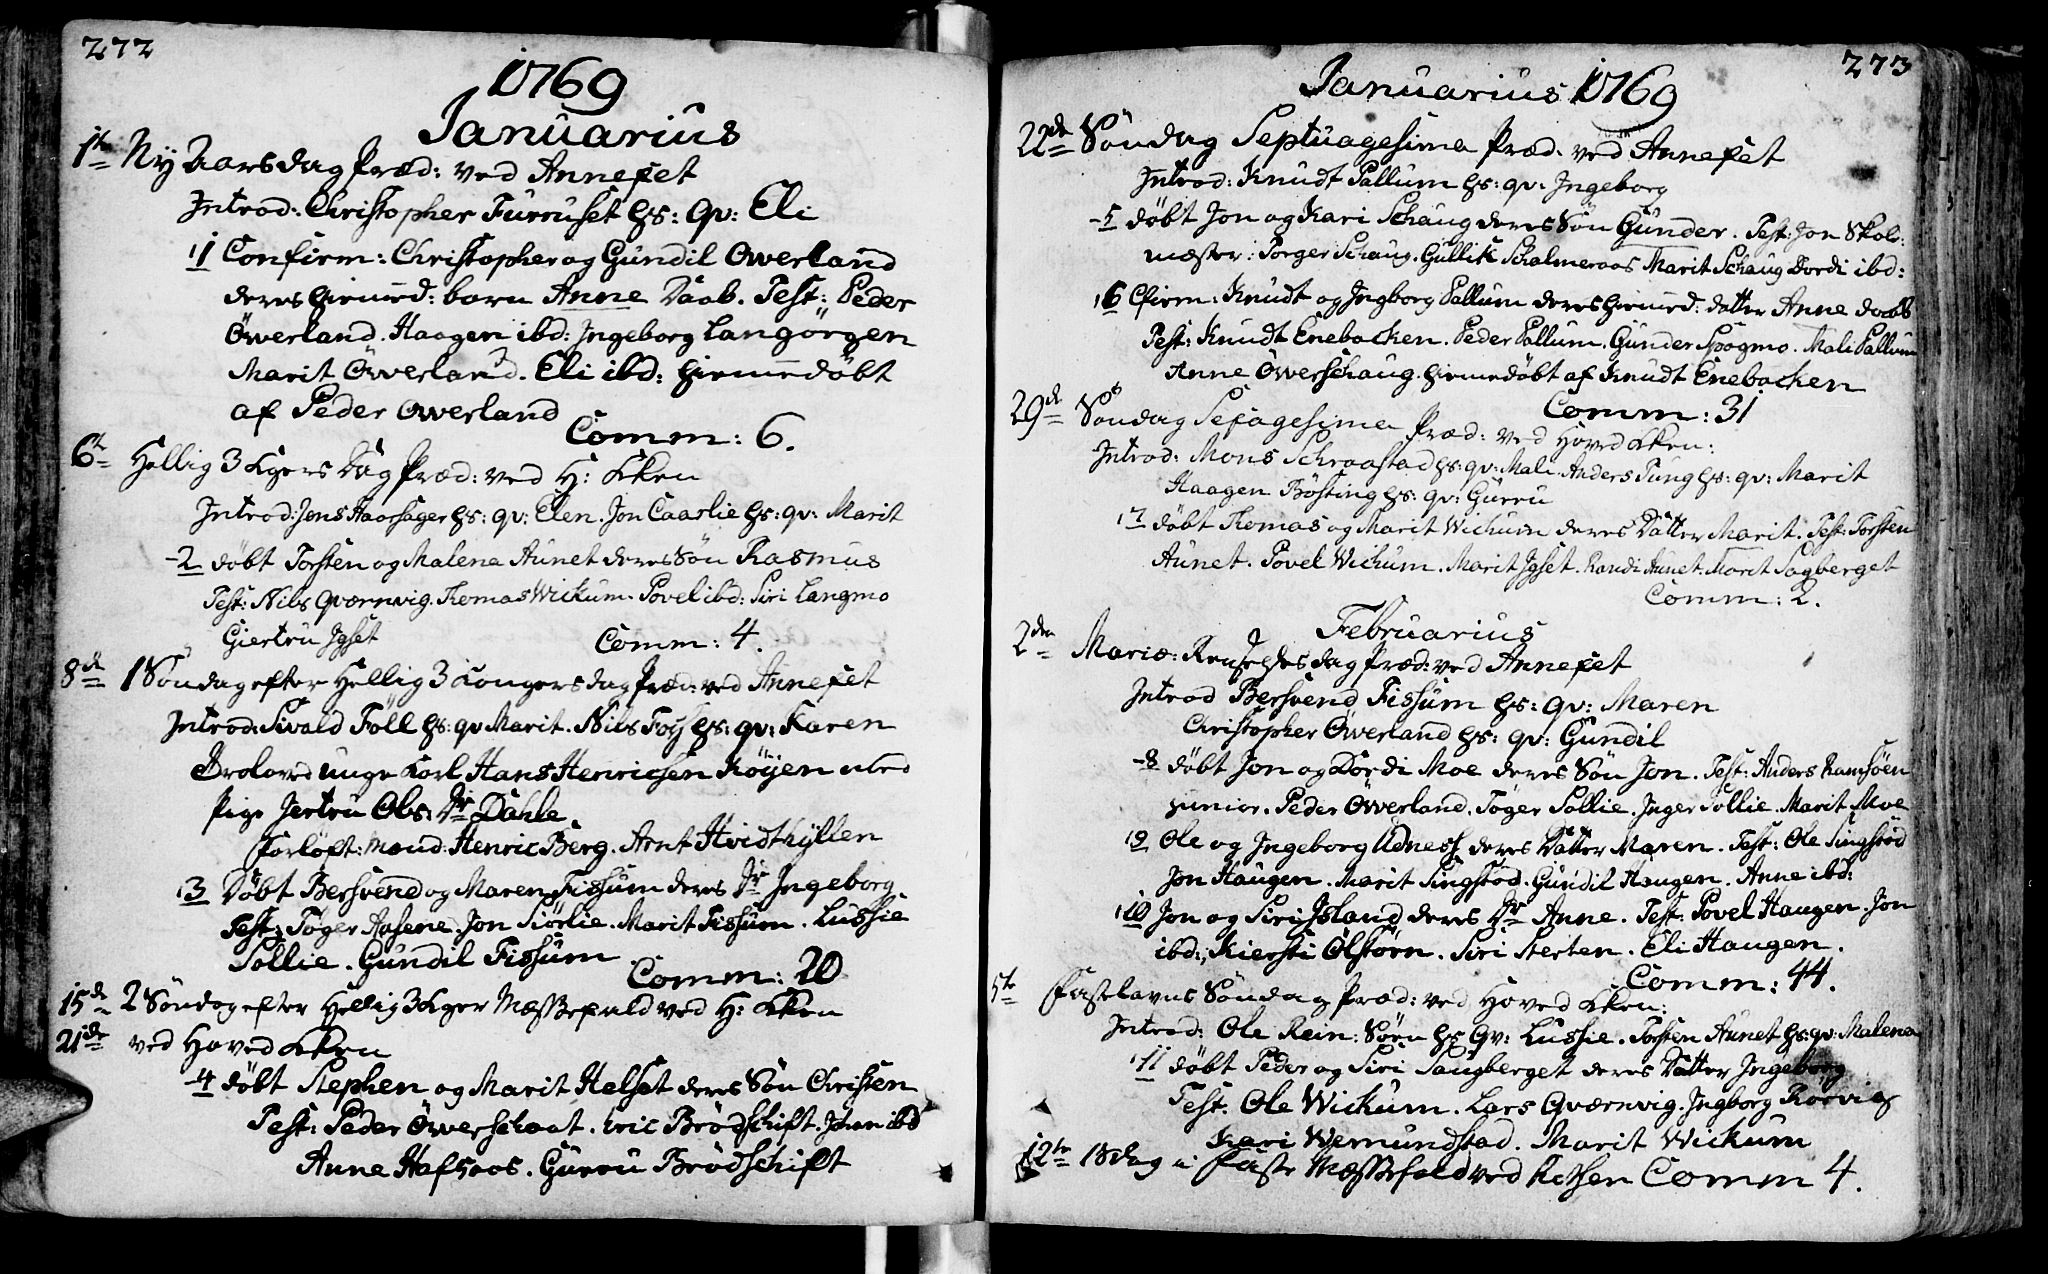 272
1769
Januarius
1te Ny Aarsdag Præd: ved Annexet
Introd: Christopher Furruset hs: qv: Eli
1 Confirm: Christopher og Gundil Owerland
deres hiemed: barn Anne Daab. Test: Peder
Öwerland. Haagen ibd: Ingeborg Langörgen
Marit Öwerland. Eli ibd: hiemedöbt
af Peder Owerland
Comm: 6.
6te Hellig 3 Kgers Dag Præd: ved H: Kken
Introd: Jens Haarsager hs: qv: Elen. Jon Caarlie hs: qv: Marit
-2 döbt Torsten og Malena Aunet deres Sön Rasmus
Test: Nils Qvernvig. Tomas Wickum. Povel ibd: Siri Langmo
Giertru Igset Comm: 4.
8de 1 Söndag efter Hellig 3 Kongersdag Præd: ved Annexet
Introd: Sivald Föll hs: qv Marit. Nils Foss hs: qv: Karen
Troloved unge Karl Hans Henrichsen Köyen med
Pige Jertru Obs: Dr Dahle.
Forlöft: Mænd: Henric Berg. Arnt Hvidthyllen
3 Döbt Bersvend og Maren Fissum deres Dr Ingeborg.
Test: Töger Aasene. Jon Siörlie. Marit Fissum. Lussie
Sollie. Gundil Fissum
Comm: 20
15de 2 Söndag efter Hellig 3 Kger Messefald ved H: Kken
21de ved Hoved Kken
-4 döbt Stephen og Marit Helset deres Sön Christen
Test: Peder Öwerschoat. Eric Brödschift. John ibd
Anne Hafsoos. Gurru Brödschift
273
Januarius 1769
22de Söndag Septuagesima Præd. ved Annexet
Introd: Knudt Pallum hs: qv: Ingeborg
-5 döbt Jon og Kari Schaug deres Sön Gunder. Test: Jon Skol:
mæster: Torger Schaug. Gullik Schalmeraas Marit Schaug Dordi ibd:
6 Cfirm: Knudt og Ingborg Pallum deres hiemed: datter Anne daab
Test: Knudt Enebacken. Peder Pallum. Gunder Moagmo. Mali Pallum
Anne Öwerschaug. hiemedöbt af Knudt Enebacken
Comm: 31
29de Söndag Sexagesima Præd: ved Hoved Kken:
Introd: Mons Schraastad hs: qv: Mali. Anders Tung hs: qv: Marit
Haagen Bösting hs: qv: Gurru
7 döbt Tomas og Marit Wickum deres Datter Marit. Test: Torsten
Aunet. Povel Wickum. Marit Igset. Randi Aunet. Marit Sagberget
Comm: 2.
Februarius
2den Mariæ: Renselses dag Præd: ved Annexet
Introd Bersvend Fissum hs: qv: Maren
Christopher Öwerland hs: qv: Gundil
-8 döbt Jon og Dordi Moe deres Sön Jon. Test: Anders Ramsöen
junior. Peder Öwerland. Töger Sollie. Inger Sollie. Marit Moe
9 Ole og Ingeborg Udness deres Datter Maren. Test: Ole Singstod
Jon Haugen. Marit Singstod. Gundil Haugen. Anne ibd:
10 Jon og Siri Island deres Dr Anne. Test: Povel Haugen. Jon
ibd: Kiersti Ölstörn. Siri Sterten. Eli Haugen.
Comm: 44.
5te Fastelavns Söndag Præd: ved Hoved Kken:
Introd: Ole Rein: Sörn hs qv: Lussie. Torsten Aunet hs: qv: Malena
11 döbt Peder og Siri Saugberget deres Datter Ingeborg
Test. Ole Wickum. Lars Qvernvig. Ingborg Rörvig
Kari Wemundstad. Marit Wickum
12te 1 Sdag i Faste Messefald ved Kken Comm 4.